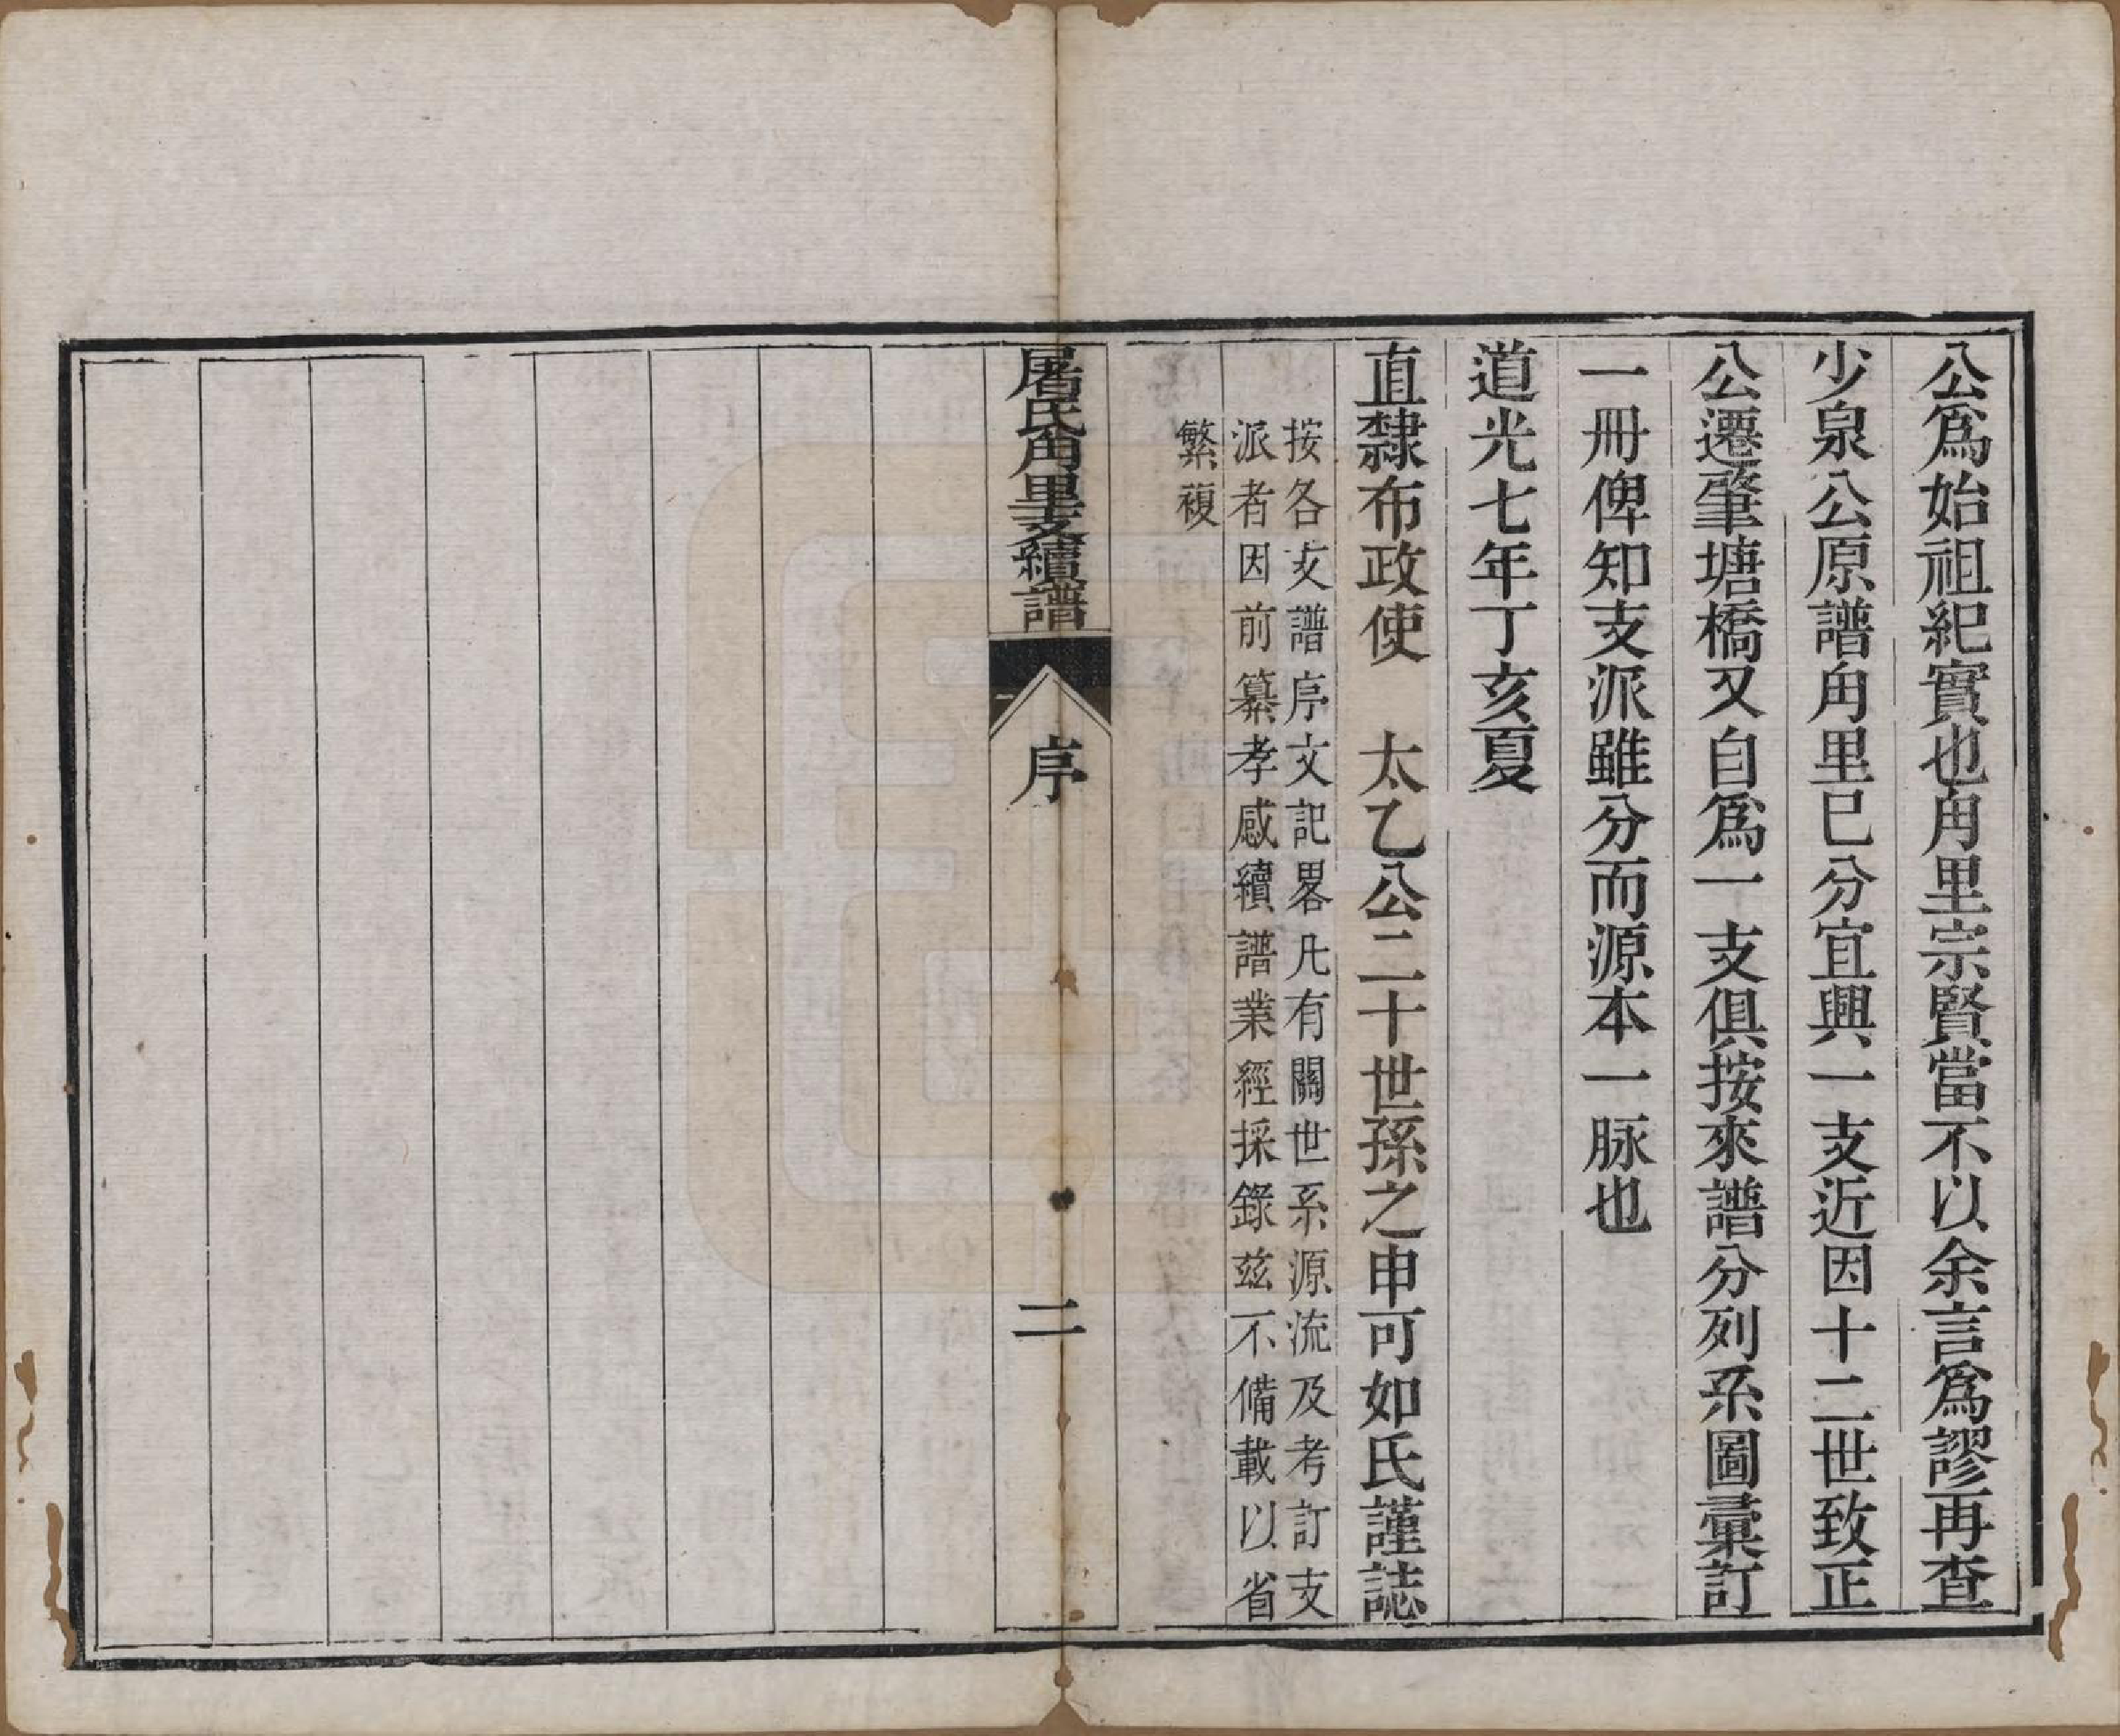 公爲始祖紀實也甪里宗賢當不以余言爲謬再查
少泉公原譜甪里巳分宜興一支近因十二世致正
公遷肇塘橋又自爲一支俱按來譜分列系圖彙訂
一冊俾知支派雖分而源本一脉也
道光七年丁亥夏
直隸布政使　太乙公二十世孫之申可如氏謹誌
按各支譜序文記畧凡有關世系源流及考訂支
派者因前纂孝感續譜業經採錄茲不備載以省
繁複
屠氏甪里支續譜
序
二